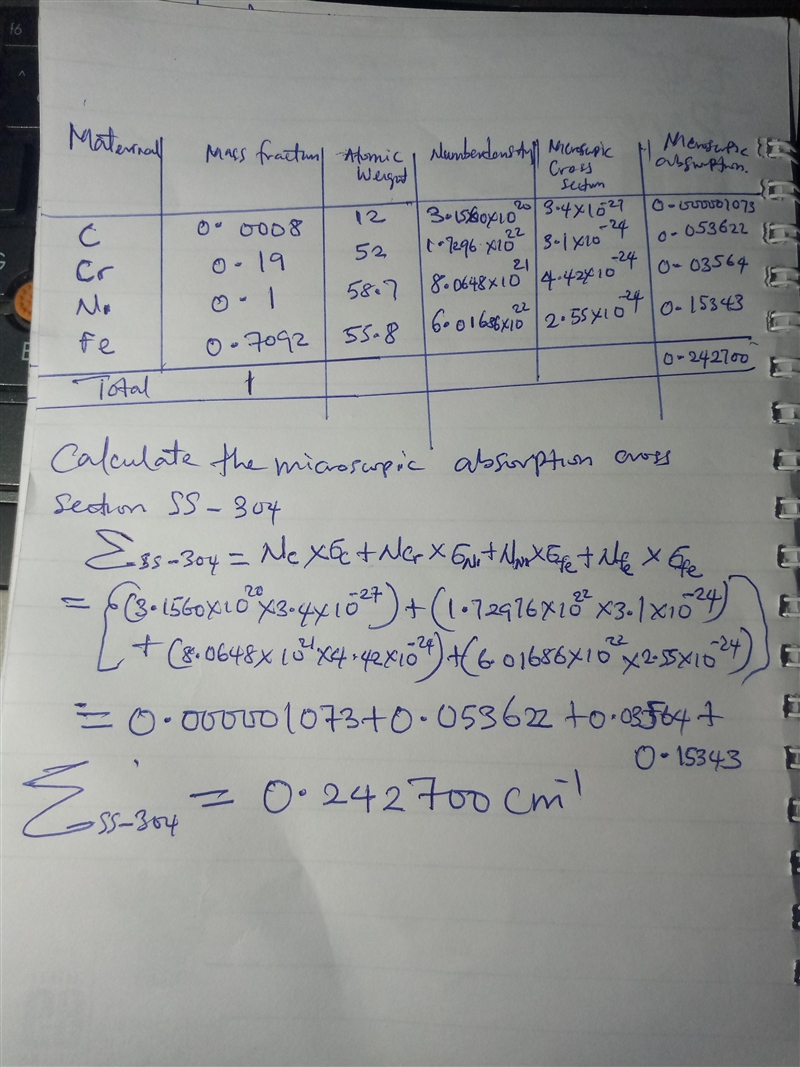 Material Mass fraction Atomic Weight Numberdensity Microscopic Cross section Microscopic absorption.
C 0.0008 12 3.1560×10^20 3.4×10^-27 0.000001073
Cr 0.19 52 1.7296×10^22 3.1×10^-24 0.053622
Ni 0.1 58.7 8.0648×10^21 4.42×10^-24 0.03564
Fe 0.7092 55.8 6.01686×10^22 2.55×10^-24 0.15343
Total 1 0.242700
Calculate the microscopic absorption cross
section SS-304
Σss-304 = Nc×σc + Ncr×σNi + NNi×σfe + Nfe×σfe
= {(3.1560×10^20×3.4×10^-27) + (1.72976×10^22×3.1×10^-24)
+ (8.0648×10^21×4.42×10^-24) + (6.01686×10^22×2.55×10^-24)}
= 0.000001073+0.053622+0.03564+
0.15343
Σss-304 = 0.242700 cm^-1